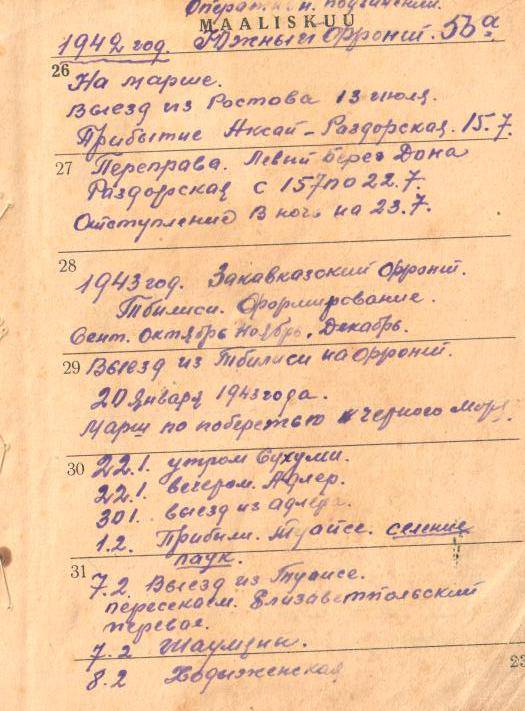 Оперативн. подчинении.
MAALISKUU
1942 год. Южный фронт. 56а
26
На марше.
Выезд из Ростова 13 июля.
Прибытие Аксай – Раздорская. 15.7.
27 Переправа. Левый берег Дона
Раздорская с 157 по 22.7.
Отступление в ночь на 23.7.
28
1943 год. Закавказский фронт.
Тбилиси. Формирование.
Сент. Октябрь Ноябрь. Декабрь.
29 Выезд из Тбилиси на фронт.
20 Января 1943 года.
Марш по побережью Черного моря.
30 22.1. утром Сухуми.
22.1. вечером. Адлер.
301. выезд из адлера.
1.2. Прибыли. Туапсе. селение
паук.
31
7.2. Выезд из Туапсе.
пересекаем. Елизаветпольский
перевал.
7.2 Шаумяны.
8.2 Ходыженская
23